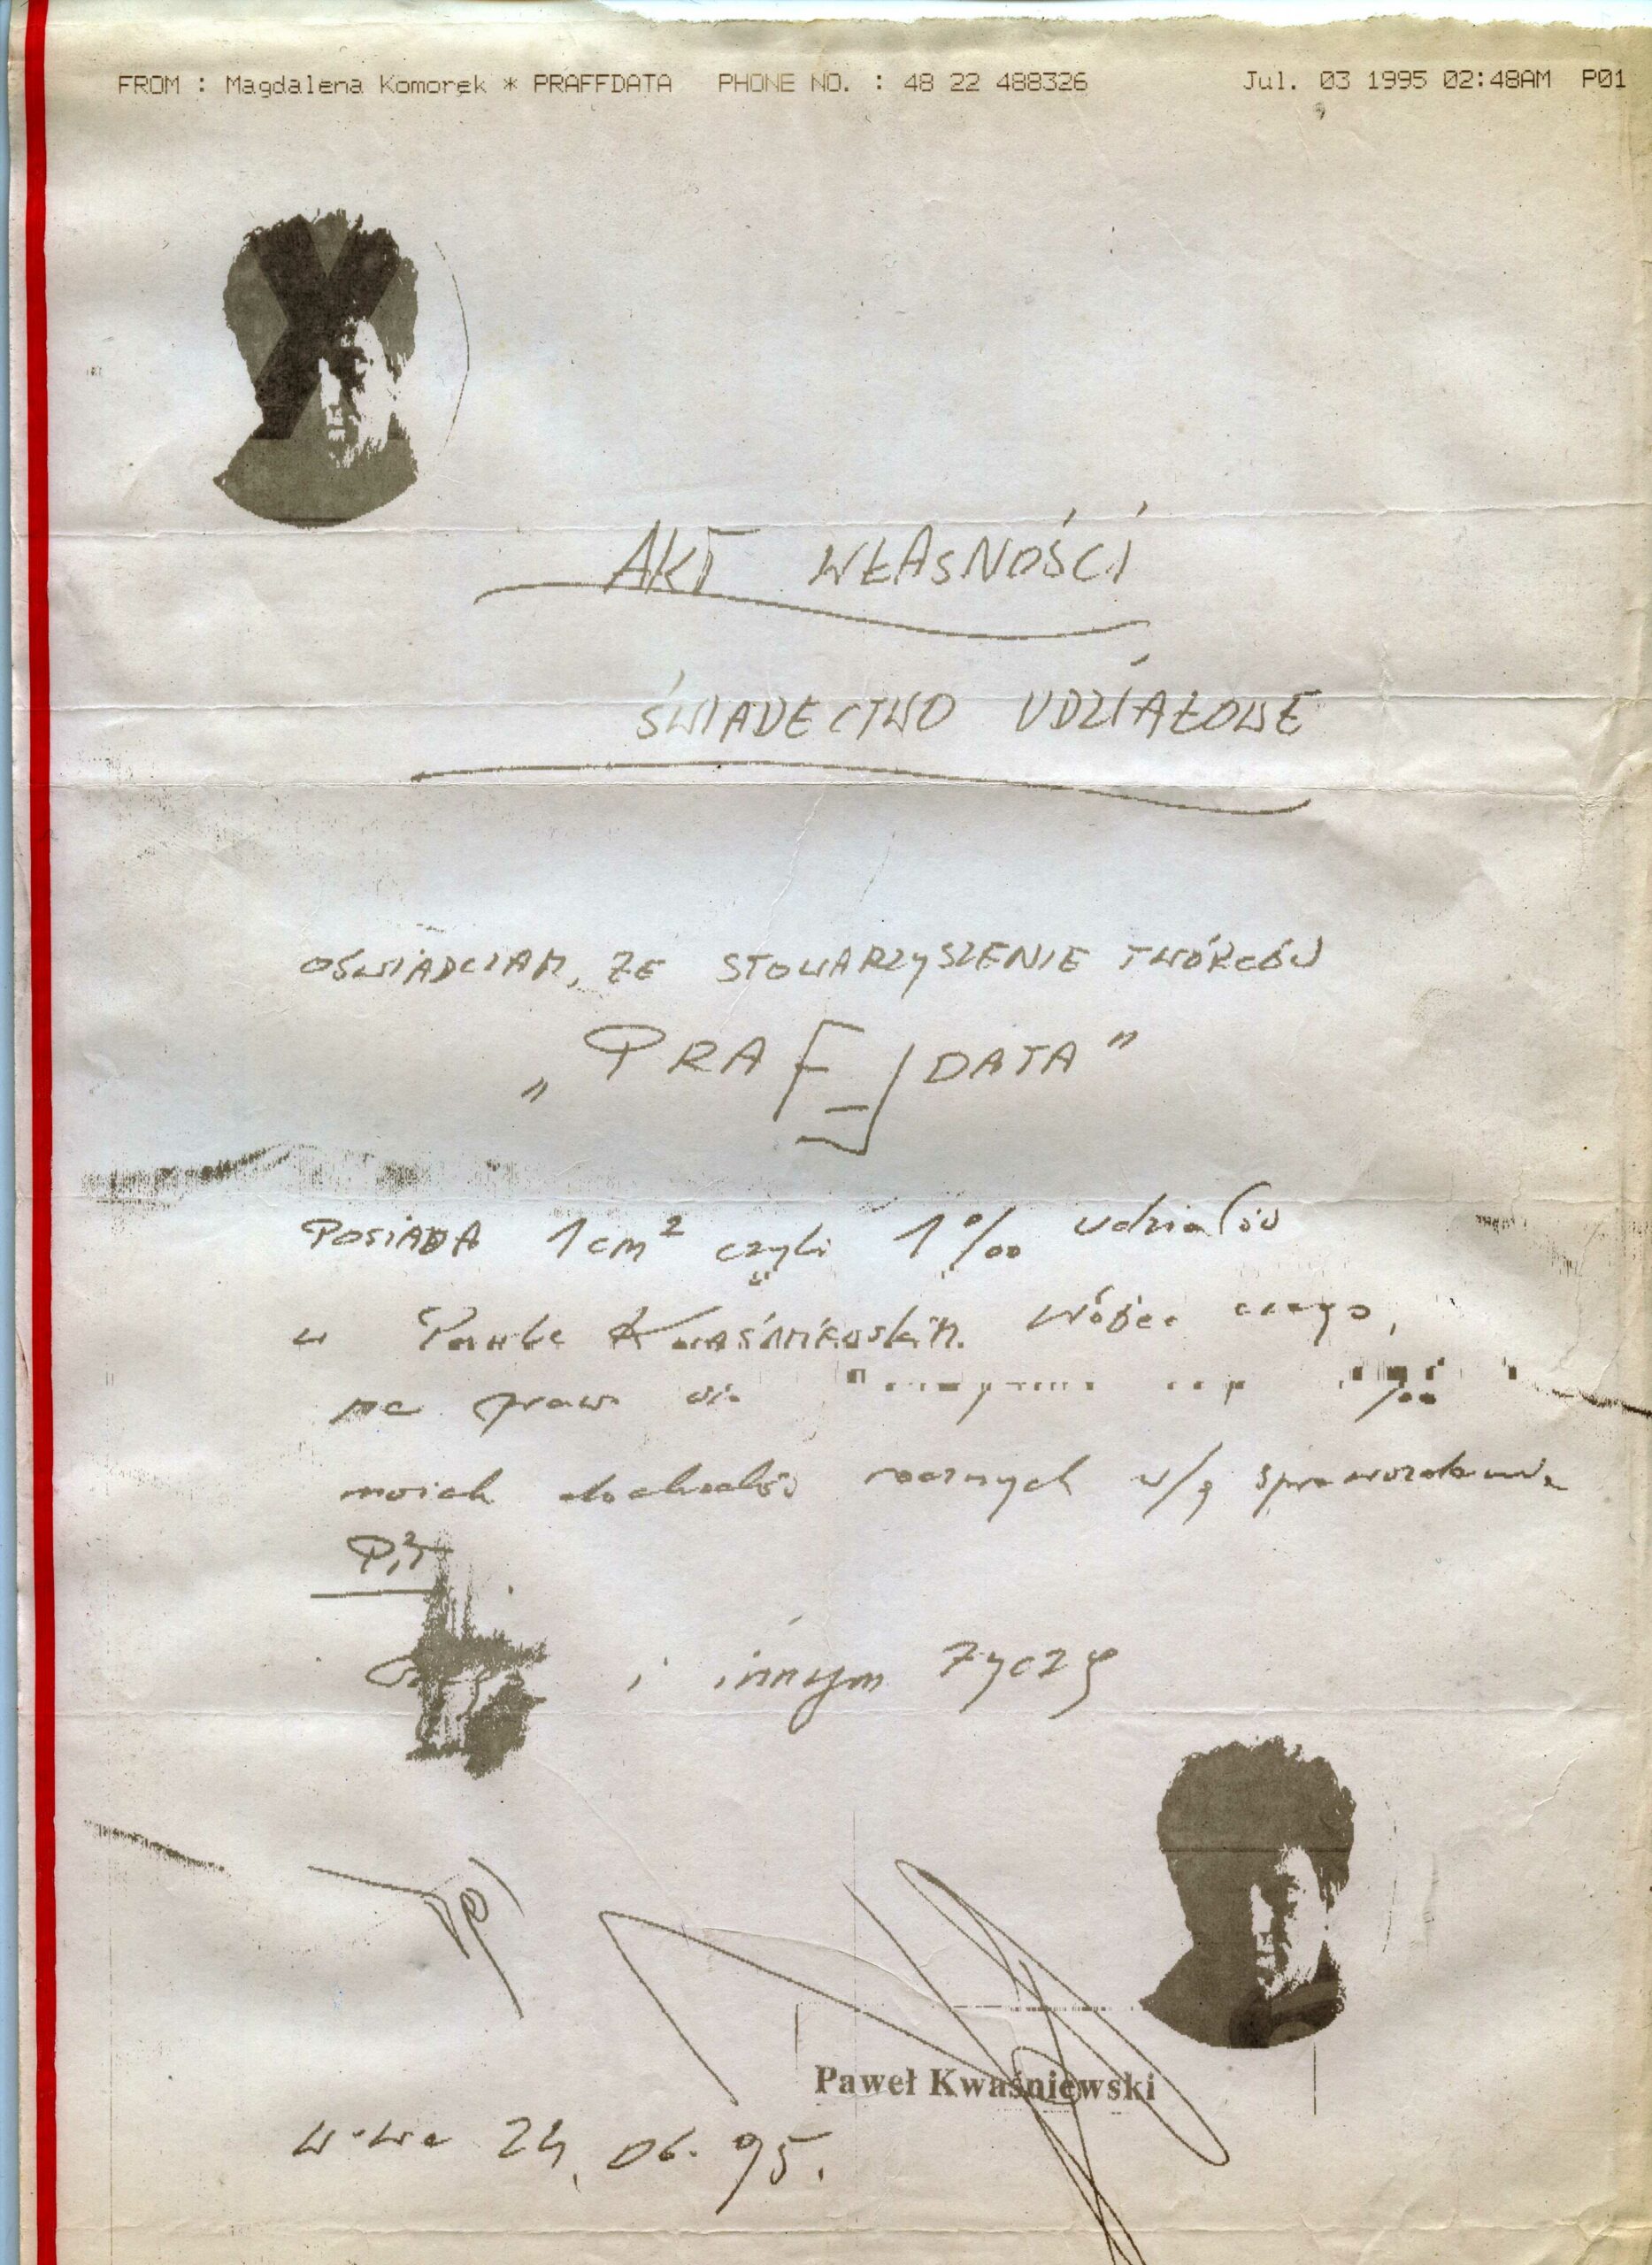 FROM : Magdalena Komorek * PRAFFDATA PHONE NO. : 48 22 488326 Jul. 03 1995 02:48AM P01
AKT WŁASNOŚCI
ŚWIADECTWO UDZIAŁOWE
OŚWIADCZAM, ŻE STOWARZYSZENIE TWÓRCÓW
„PRAFFDATA”
POSIADA 1 cm² czyli 1‰ udziałów
w Pawle Kwaśniewskim. Wobec czego,
ma prawo do
moich dochodów rocznych w/g sprawozdania
i innym życzę
Paweł Kwaśniewski
W-wa 24.06.95.